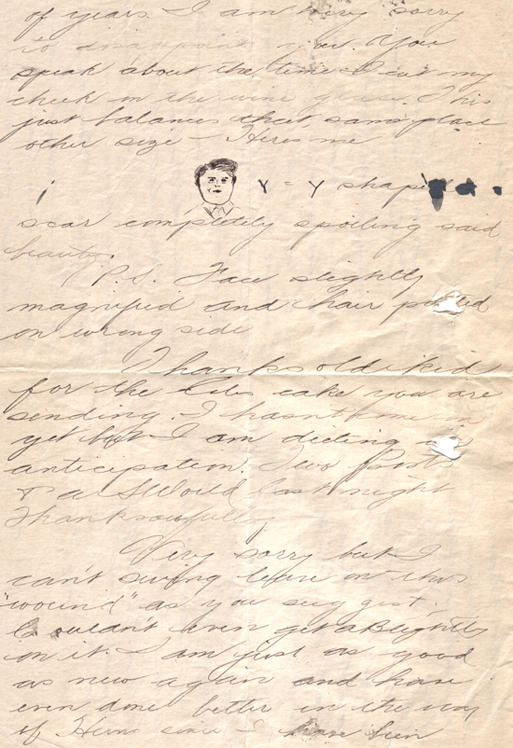 of years. I am very sorry
to disappoint you. You
speak about the time I cut my
cheek on the wine glass. This
just balances that, same place
other side – Heres me
Y – Y shaped
scar completely spoiling said
beauty.
P.S. Face slightly
magnified and hair parted
on wrong side
Thanks old kid
for the cake you are
sending. I hasnt come
yet but I am dieting in
anticipation. Two Posts
& a S World last night
Thanks awfully
Very sorry but I
can't swing leave on this
"wound" as you suggest,
Couldn't even get a Blighty
on it. I am just as good
as new again and have
even done better in the way
of Huns since I have been